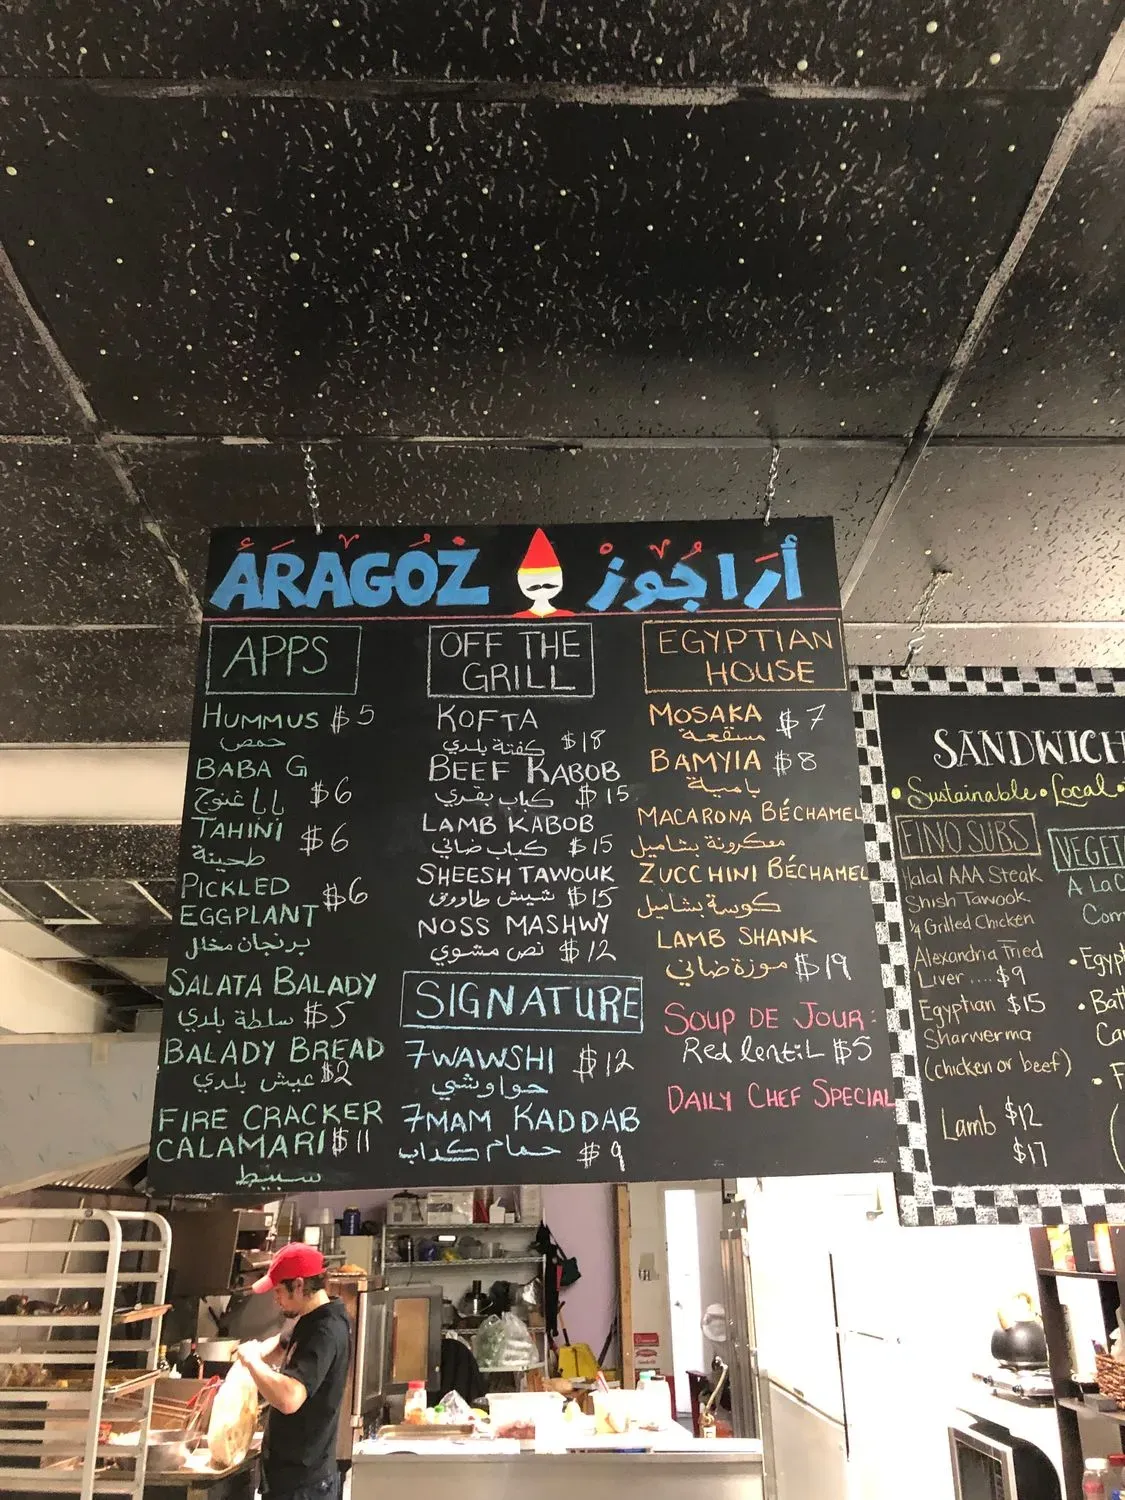 ARAGOZ أراجوز
APPS
HUMMUS $5
حمص
BABA G
بابا غنوج $6
TAHINI
طحينة $6
PICKLED
EGGPLANT $6
برنجان مخلل
SALATA BALADY
سلطة بلدي $5
BALADY BREAD
عيش بلدي $2
FIRE CRACKER
CALAMARI $11
سبيط
OFF THE
GRILL
KOFTA
كفتة بلدي $18
BEEF KABOB
كباب بقري $15
LAMB KABOB
كباب ضاني $15
SHEESH TAWOUK
شيش طاووق $15
NOSS MASHWY
نص مشوي $12
SIGNATURE
7WAWSHI $12
حواوشي
7MAM KADDAB
حمام كداب $9
EGYPTIAN
HOUSE
MOSAKA $7
مسقعة
BAMYIA $8
بامية
MACARONA BÉCHAMEL
معكرونة بشاميل
ZUCCHINI BÉCHAMEL
كوسة بشاميل
LAMB SHANK
موزة ضاني $19
SOUP DE JOUR:
Red lentil $5
DAILY CHEF SPECIAL
SANDWICH
• Sustainable • Local •
FINO SUBS
Halal AAA Steak
Shish Tawook
1/4 Grilled Chicken
Alexandria Fried
Liver .... $9
Egyptian $15
Sharwerma
(chicken or beef)
Lamb $12
$17
VEGET
A La C
Com
• Egyp
• Bat
Ca
• F